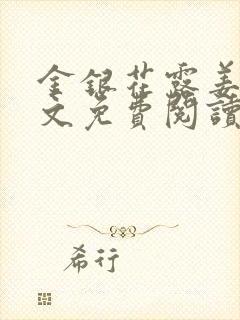 金銀花露姜
文免費閱讀
希行